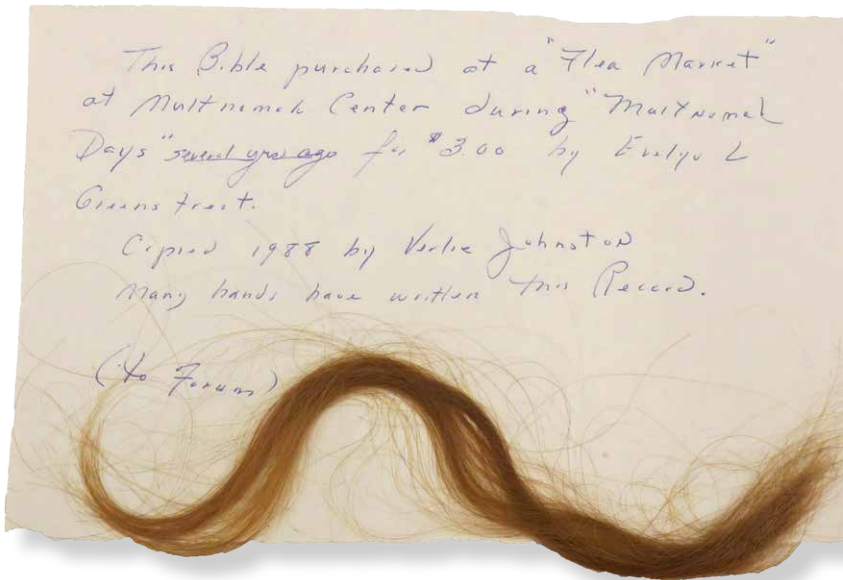 This Bible purchased at a "Flea Market"
at Multnomah Center during "Multnomah
Days" several yrs ago for $3.00 by Evelyn L
Greenstreet.
Copied 1988 by Verlie Johnston
Many hands have written this Record.
(to Forum)